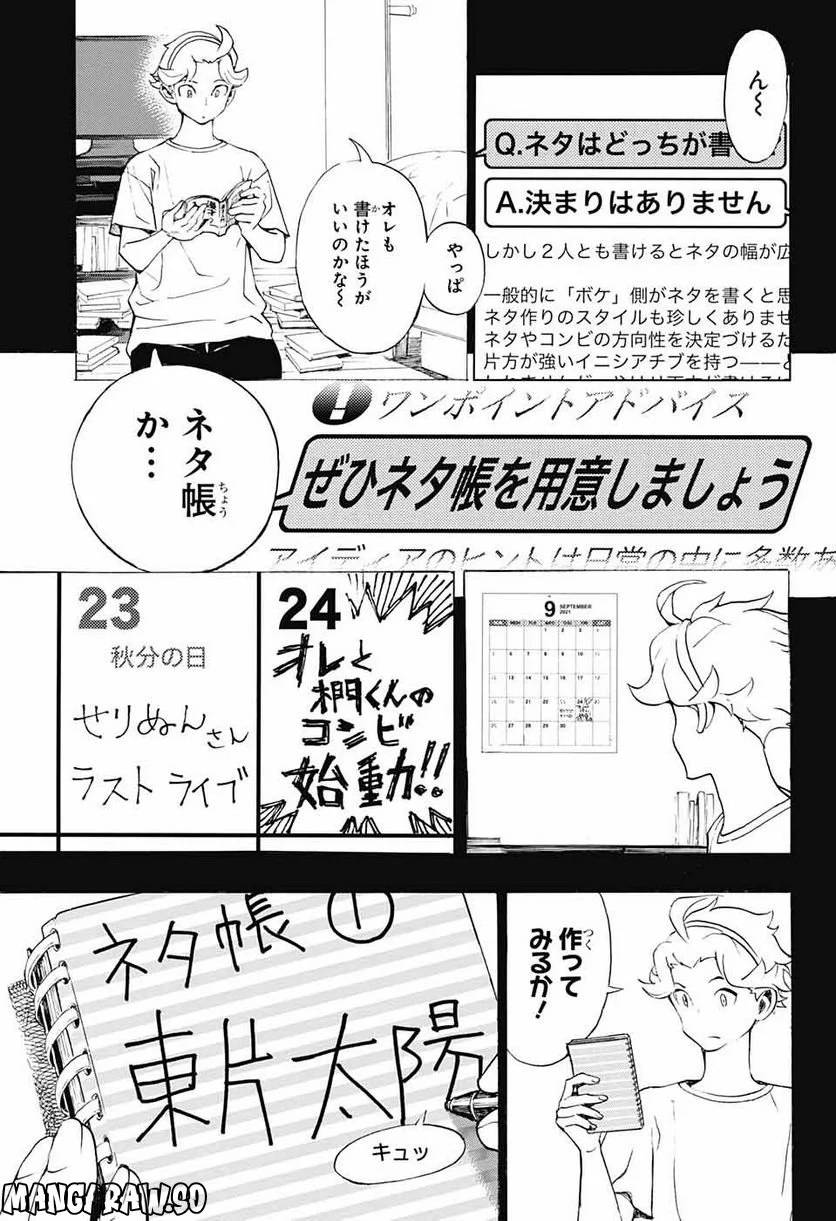 ん〜
Q.ネタはどっちが書
A.決まりはありません
しかし2人とも書けるとネタの幅が広
一般的に「ボケ」側がネタを書くと思
ネタ作りのスタイルも珍しくありませ
ネタやコンビの方向性を決定づけるた
片方が強いイニシアチブを持つ――と
やっぱ
オレも
書けたほうが
いいのかな〜
! ワンポイントアドバイス
ぜひネタ帳を用意しましょう
アイディアのヒントは日常の中に多数
ネタ帳
か…
9 SEPTEMBER
2021
24
オレと
椚くんの
コンビ
始動!!
23
秋分の日
せりぬんさん
ラストライブ
作って
みるか!
ネタ帳①
東片太陽
キュッ
MANGARAW.SO